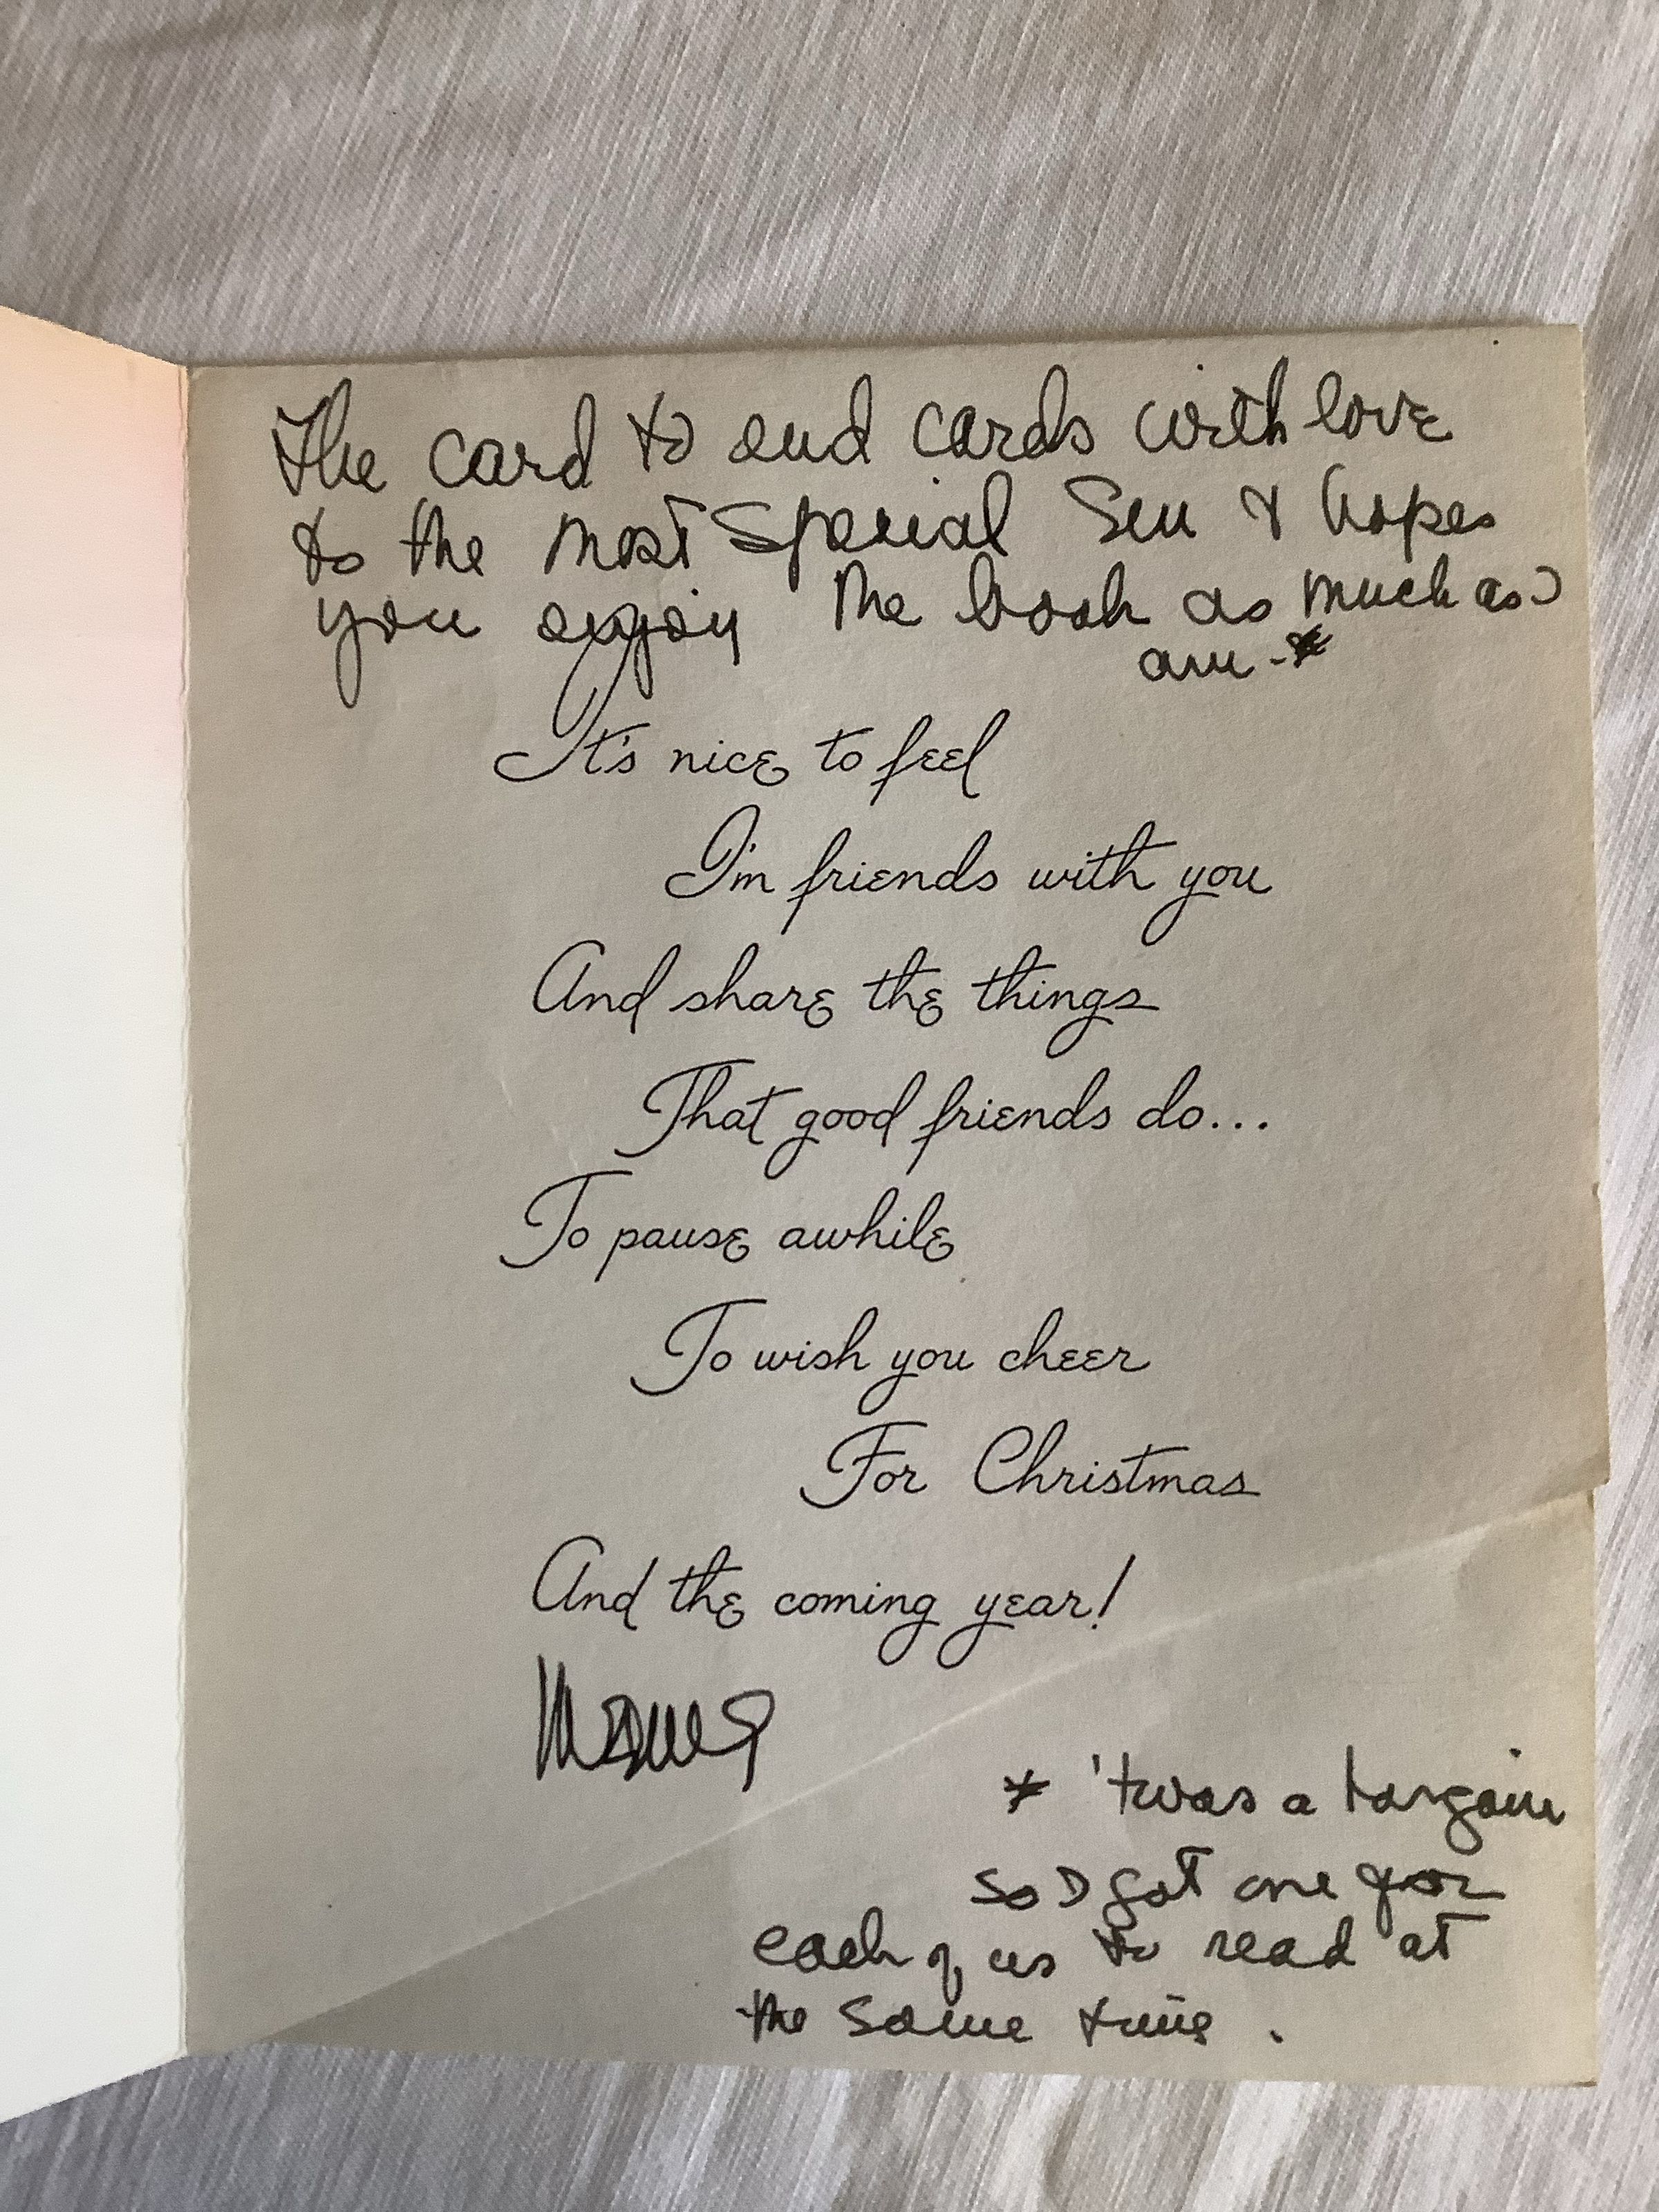 The card to end cards with love
to the most special Sun & hopes
you enjoy the book as much as I
am -*
It's nice to feel
I'm friends with you
And share the things
That good friends do...
To pause awhile
To wish you cheer
For Christmas
And the coming year!
* 'twas a bargain
so I got one for
each of us to read at
the same time.